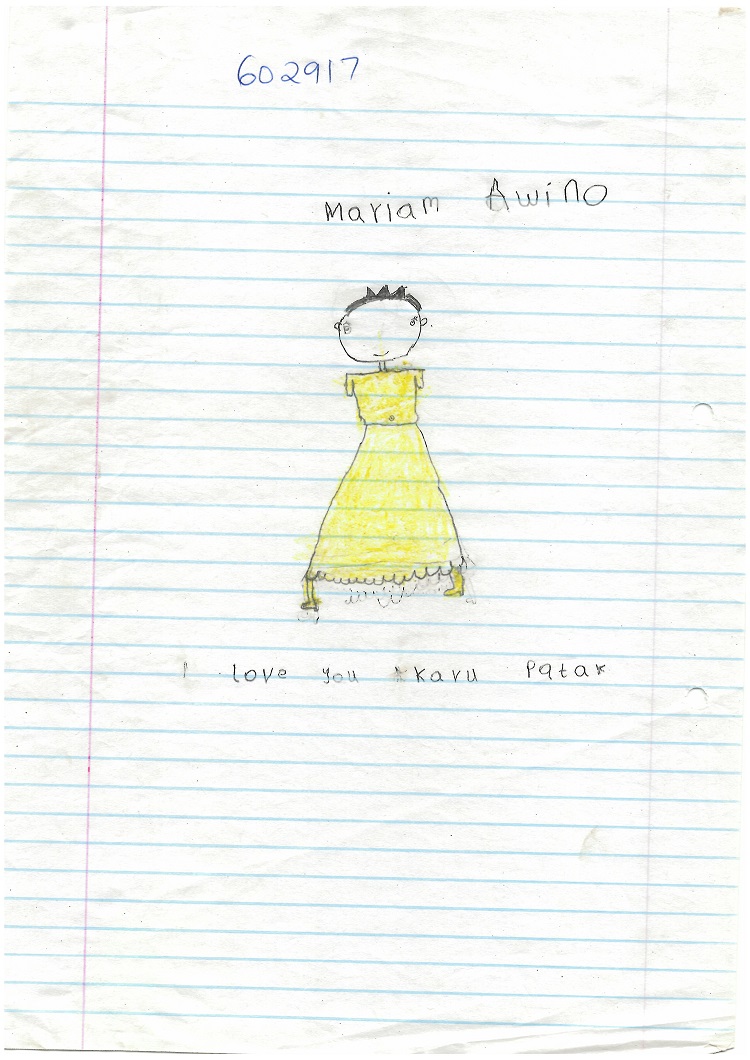 602917
Mariam Awino
I love you *Karu Pata*